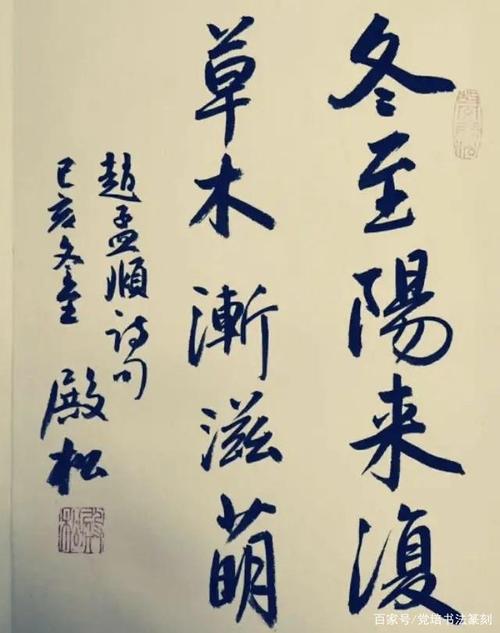 冬至陽来復
草木漸滋萌
趙孟順詩句
己亥冬至 殿松
百家号/党培书法篆刻